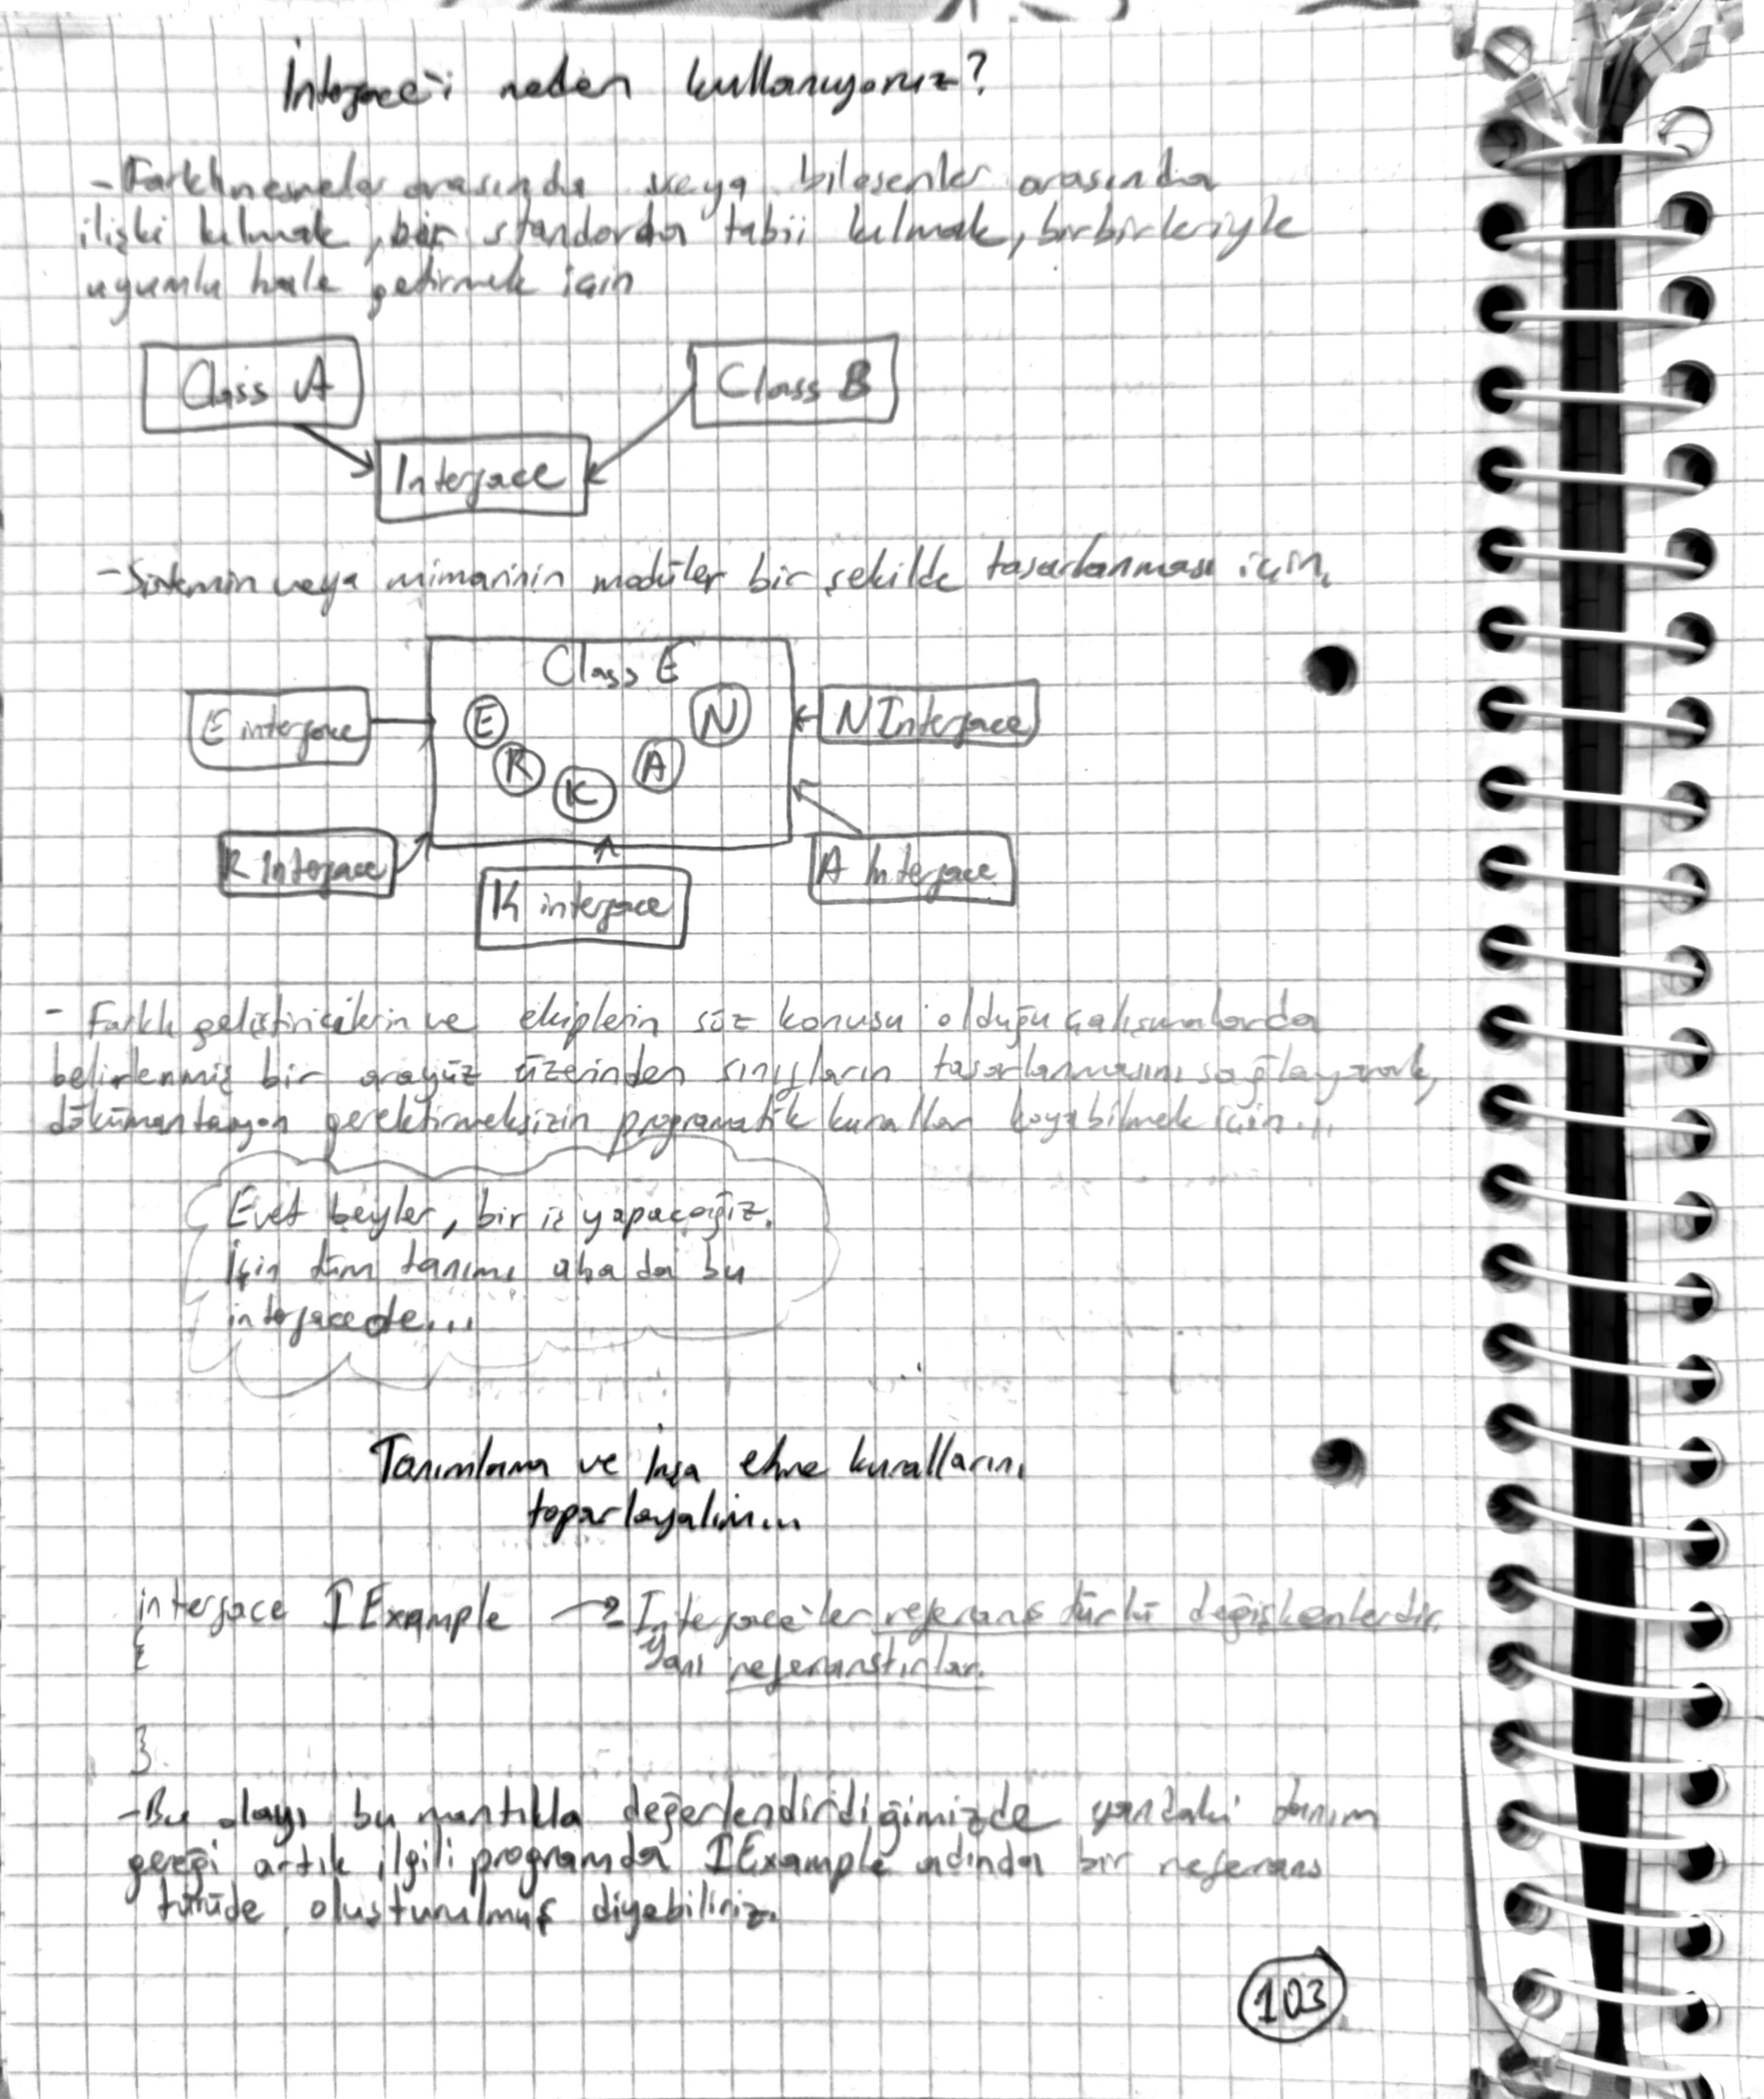 İnterface'i neden kullanıyoruz?
- Farklı nesneler arasında veya bileşenler arasında
ilişki kılmak, bir standarda tabii kılmak, birbirleriyle
uyumlu hale getirmek için
Class A
Class B
Interface
- Sistemin veya mimarinin modüler bir şekilde tasarlanması için.
Class E
E interface
E
R
K
A
N
N Interface
R Interface
K interface
A Interface
- Farklı geliştiricilerin ve ekiplerin söz konusu olduğu çalışmalarda
belirlenmiş bir arayüz üzerinden sınıfların tasarlanmasını sağlayarak,
dökümantasyon gerektirmeksizin programatik kurallar koyabilmek için...
Evet beyler, bir iş yapacağız.
İşin tüm tanımı aha da bu
interfacede...
Tanımlama ve İnşa etme kurallarını
toparlayalım...
interface IExample → Interface'ler referans türlü değişkenlerdir.
{ Yani referanstırlar.
}
- Bu olayı bu mantıkla değerlendirdiğimizde yandaki tanım
gereği artık ilgili programda IExample adında bir referans
türüde oluşturulmuş diyebiliriz.
103